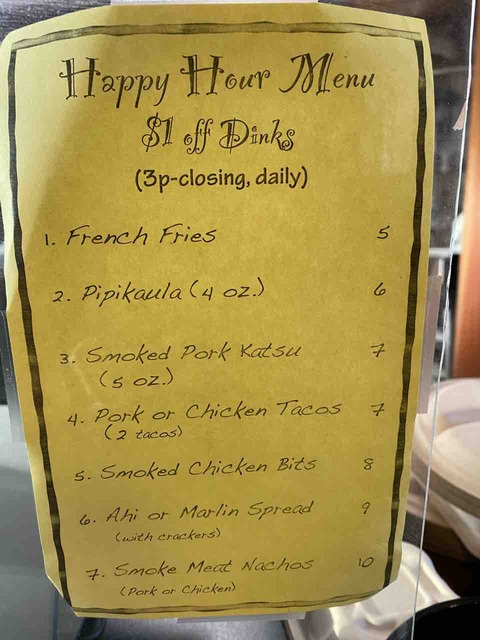 Happy Hour Menu
$1 off Dinks
(3p-closing, daily)
1. French Fries 5
2. Pipikaula (4 oz.) 6
3. Smoked Pork Katsu 7
(5 oz.)
4. Pork or Chicken Tacos 7
(2 tacos)
5. Smoked Chicken Bits 8
6. Ahi or Marlin Spread 9
(with crackers)
7. Smoke Meat Nachos 10
(Pork or Chicken)